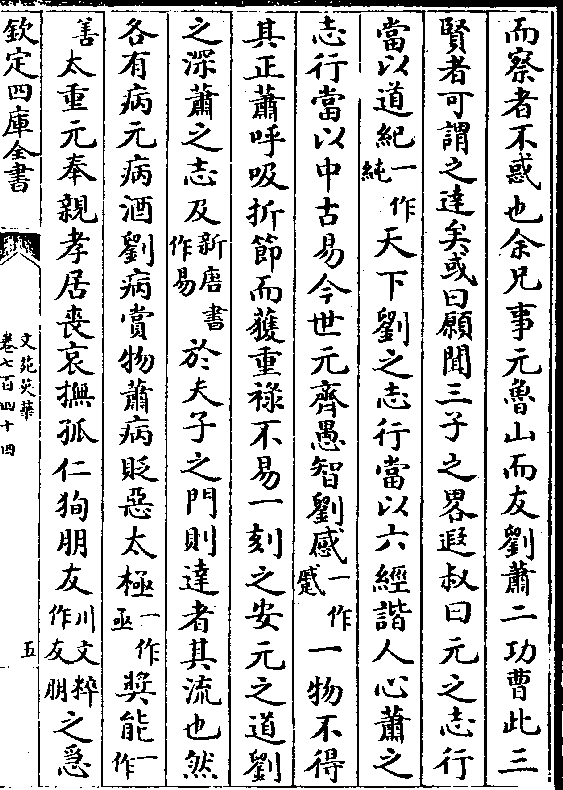 而察者不惑也余兄事元魯山而友劉蕭二功曹此三
賢者可謂之達矣或曰願聞三子之畧遐叔曰元之志行
當以道紀一作純天下劉之志行當以六經諧人心蕭之
志行當以中古易今世元齊愚智劉感一作慼一物不得
其正蕭呼吸折節而獲重祿不易一刻之安元之道劉
之深蕭之志及新唐書作易於夫子之門則達者其流也然
各有病元病酒劉病賞物蕭病貶惡太極一作亟奬能一作
善太重元奉親孝居喪哀撫孤仁狥朋友川文粹作友朋之急
欽定四庫全書
文苑英華
卷七百四十四
五